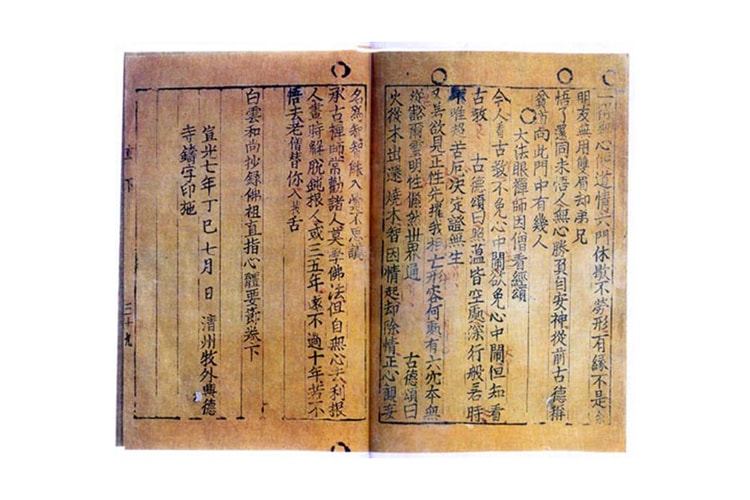 一得無心便道情六門休歇不勞形有緣不是
朋友無用雙眉却弟兄
悟了還同未悟人無心勝負自安神從前古德稱
貧道向此門中有幾人
大法眼禪師因僧看經頌
今人看古教不免心中鬧欲免心中鬧但知看
古教 古德頌曰照蘊皆空處深行般若時
唯超苦厄決定證無生
又無欲見正性先摧我相亡形容何處有六本無
豁爾靈明性出世通 古德頌曰
火從木出還燒木智因情起却除情正心觀妄
名爲智智緣入不思議
承古禪師常勸諸人莫學佛法但自無心去利根
人晝時解脫鈍根人或三五年遠不過十年若不
悟去老僧替你入拔舌
白雲和尙抄錄佛祖直指心體要節卷下
宣光七年丁巳七月 日 淸州牧外興德
寺鑄字印施
直 下 三十九